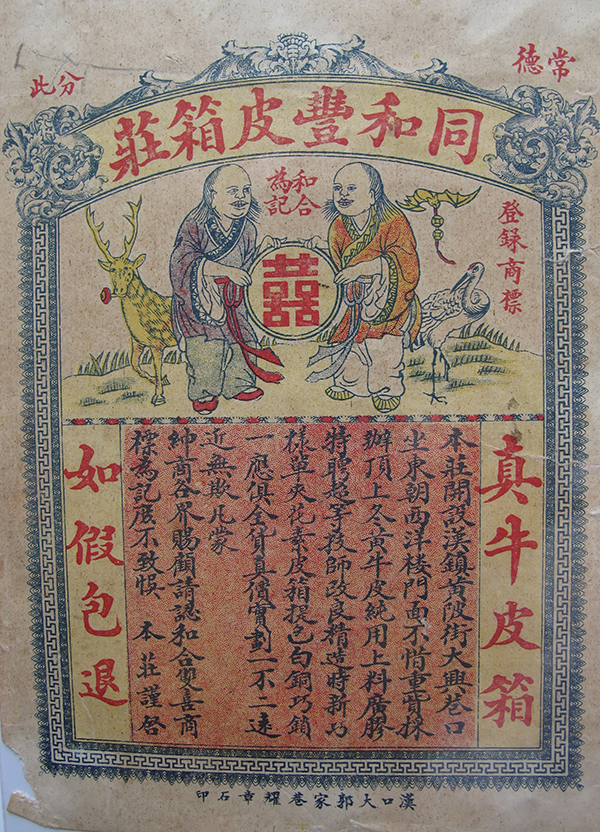 常德
分此
同和豐皮箱莊
和合
為記
登錄商標
囍
真牛皮箱
本莊開設漢鎮黃陂街大興巷口
坐東朝西洋樓門面不惜重資採
辦頂上冬黃牛皮純用上料廣膠
特聘超等技師改良精造時新巧
樣單夾花素皮箱提包白銅巧鎖
一應俱全貨真價實劃一不二遠
近無欺凡蒙
紳商各界賜顧請認和合雙喜商
標為記庶不致悞 本莊謹啓
如假包退
漢口大郭家巷耀章石印